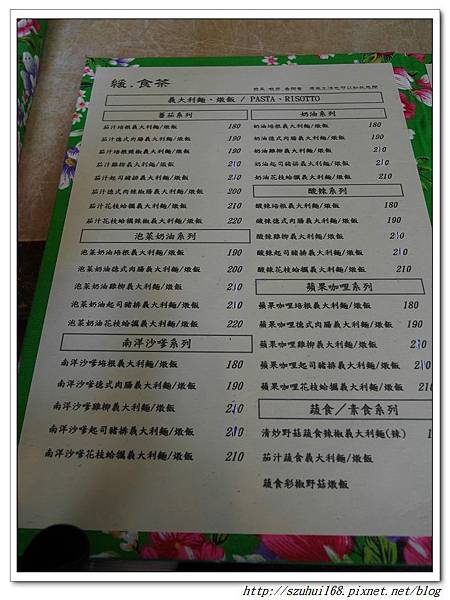 緩．食茶
義大利麵、燉飯 / PASTA、RISOTTO
蕃茄系列
茄汁培根義大利麵/燉飯 180
茄汁德式肉腸義大利麵/燉飯 190
茄汁培根辣椒義大利麵/燉飯 190
茄汁雞柳義大利麵/燉飯 210
茄汁起司豬排義大利麵/燉飯 210
茄汁德式肉辣椒腸義大利麵/燉飯 200
茄汁花枝蛤蠣義大利麵/燉飯 210
茄汁花枝蛤蠣辣椒義大利麵/燉飯 220
泡菜奶油系列
泡菜奶油培根義大利麵/燉飯 190
泡菜奶油德式肉腸義大利麵/燉飯 200
泡菜奶油雞柳義大利麵/燉飯 210
泡菜奶油起司豬排義大利麵/燉飯 210
泡菜奶油花枝蛤蠣義大利麵/燉飯 220
南洋沙嗲系列
南洋沙嗲培根義大利麵/燉飯 180
南洋沙嗲德式肉腸義大利麵/燉飯 190
南洋沙嗲雞柳義大利麵/燉飯 210
南洋沙嗲起司豬排義大利麵/燉飯 210
南洋沙嗲花枝蛤蠣義大利麵/燉飯 210
奶油系列
奶油培根義大利麵/燉飯 180
奶油德式肉腸義大利麵/燉飯 190
奶油雞柳義大利麵/燉飯 210
奶油起司豬排義大利麵/燉飯 210
奶油花枝蛤蠣義大利麵/燉飯 210
酸辣系列
酸辣培根義大利麵/燉飯 180
酸辣德式肉腸義大利麵/燉飯 190
酸辣雞柳義大利麵/燉飯 210
酸辣起司豬排義大利麵/燉飯 210
酸辣花枝蛤蠣義大利麵/燉飯 210
蘋果咖哩系列
蘋果咖哩培根義大利麵/燉飯 180
蘋果咖哩德式肉腸義大利麵/燉飯 190
蘋果咖哩雞柳義大利麵/燉飯 210
蘋果咖哩起司豬排義大利麵/燉飯 210
蘋果咖哩花枝蛤蠣義大利麵/燉飯 210
蔬食／素食系列
清炒野菇蔬食辣椒義大利麵(辣) 1
茄汁蔬食義大利麵/燉飯
蔬食彩椒野菇燉飯
http://szuhui168.pixnet.net/blog